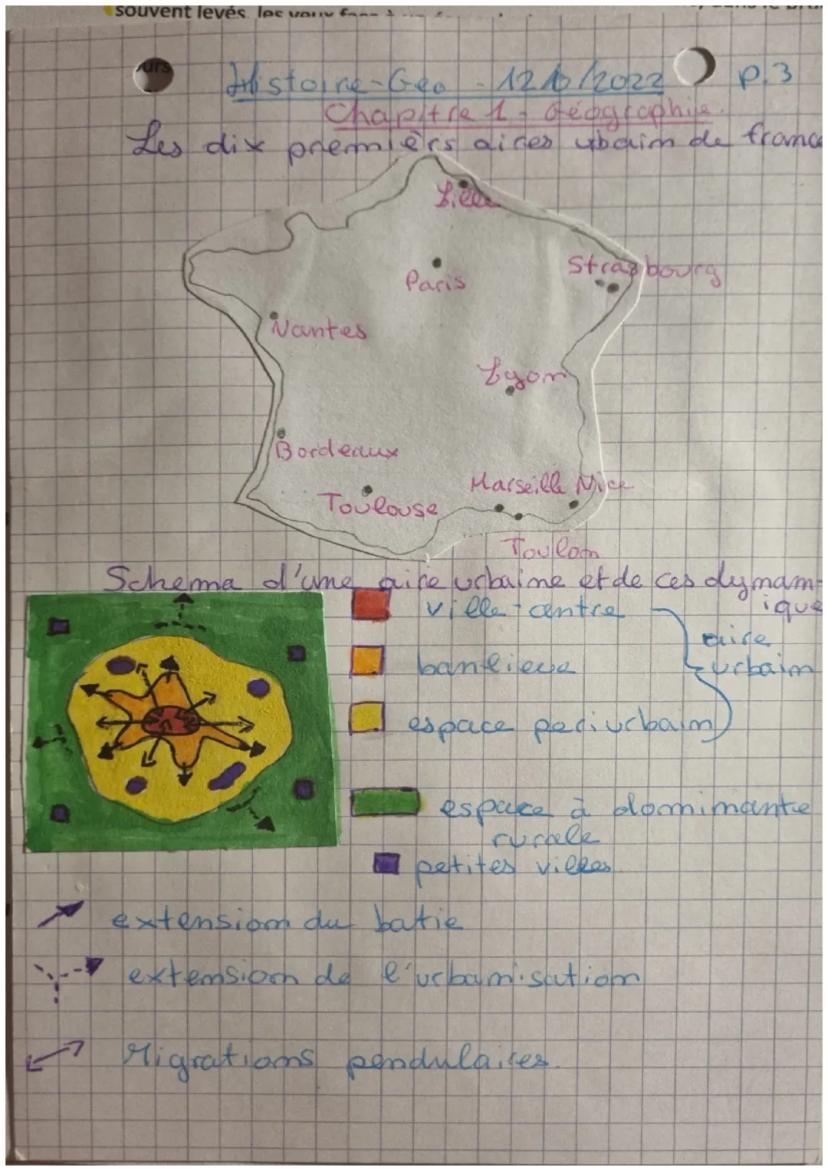 souvent levés, les yeux
Histoire-Géo - 12/10/2022 p.3
Chapitre 1 - Géographie.
Les dix premièrs aires urbain de france
Lille
Strasbourg
Paris
Nantes
Lyon
Bordeaux
Marseille Nice
Toulouse
Toulon
Schema d'une aire urbaine et de ces dynam-
ique
ville-centre
aire
urbain
banlieue
espace periurbain
espace à dominante
rurale
petites villes
extension du batie
extension de l'urbanisation
Migrations pendulaires.